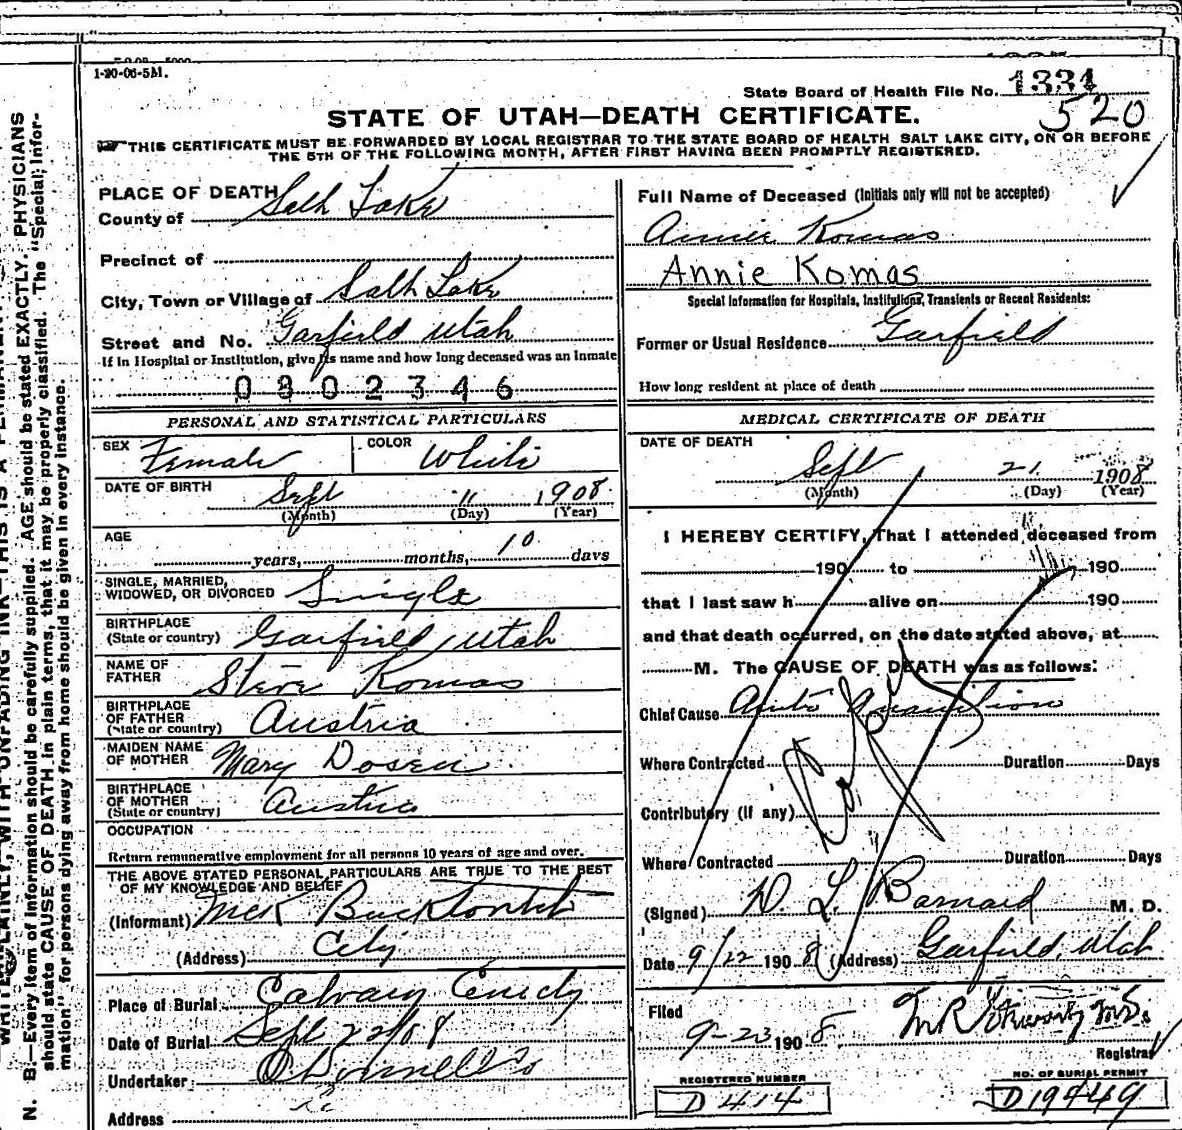 1-20-06-5M.
State Board of Health File No. 1334
520
STATE OF UTAH—DEATH CERTIFICATE.
THIS CERTIFICATE MUST BE FORWARDED BY LOCAL REGISTRAR TO THE STATE BOARD OF HEALTH SALT LAKE CITY, ON OR BEFORE
THE 5TH OF THE FOLLOWING MONTH, AFTER FIRST HAVING BEEN PROMPTLY REGISTERED.
PLACE OF DEATH
County of Salt Lake
Precinct of
City, Town or Village of Salt Lake
Street and No. Garfield Utah
If in Hospital or Institution, give its name and how long deceased was an inmate
0802346
Full Name of Deceased (Initials only will not be accepted)
Annie Komas
Annie Komas
Special Information for Hospitals, Institutions, Transients or Recent Residents:
Former or Usual Residence Garfield
How long resident at place of death
PERSONAL AND STATISTICAL PARTICULARS
SEX Female COLOR White
DATE OF BIRTH Sept 11 1908
(Month) (Day) (Year)
AGE
years, months, 10 days
SINGLE, MARRIED,
WIDOWED, OR DIVORCED Single
BIRTHPLACE
(State or country) Garfield Utah
NAME OF
FATHER Steve Komas
BIRTHPLACE
OF FATHER
(State or country) Austria
MAIDEN NAME
OF MOTHER Mary Dosen
BIRTHPLACE
OF MOTHER
(State or country) Austria
OCCUPATION
Return remunerative employment for all persons 10 years of age and over.
THE ABOVE STATED PERSONAL PARTICULARS ARE TRUE TO THE BEST
OF MY KNOWLEDGE AND BELIEF
(Informant)
(Address) City
Place of Burial Calvary
Date of Burial Sept 22/08
Undertaker O'Donnell & Co
Address
MEDICAL CERTIFICATE OF DEATH
DATE OF DEATH
Sept 21 1908
(Month) (Day) (Year)
I HEREBY CERTIFY, That I attended deceased from
190 to 190
that I last saw h alive on 190
and that death occurred, on the date stated above, at
M. The CAUSE OF DEATH was as follows:
Chief Cause
Where Contracted Duration Days
Contributory (if any)
Where Contracted Duration Days
(Signed) D. L. Barnard M. D.
Date 9/22 1908 (Address) Garfield, Utah
Filed
9-23 1908
Registrar
REGISTERED NUMBER
D 414
NO. OF BURIAL PERMIT
D19449
N. B.—Every item of information should be carefully supplied. AGE should be stated EXACTLY. PHYSICIANS
should state CAUSE OF DEATH in plain terms, that it may be properly classified. The "Special Infor-
mation" for persons dying away from home should be given in every instance.